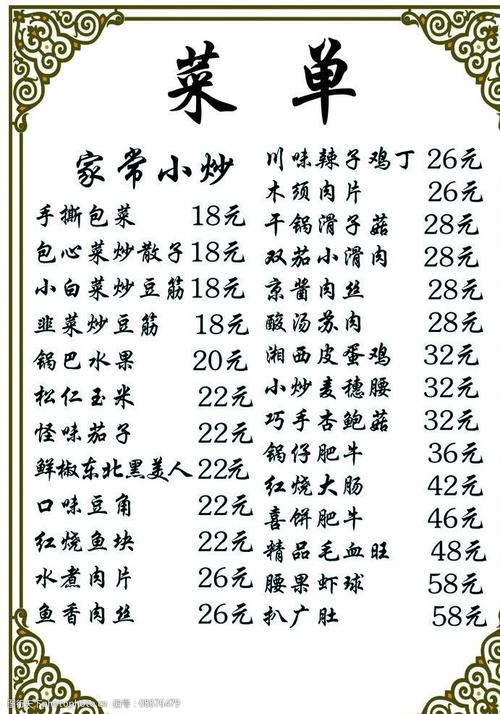 菜单
家常小炒
手撕包菜 18元
包心菜炒散子 18元
小白菜炒豆筋 18元
韭菜炒豆筋 18元
锅巴水果 20元
松仁玉米 22元
怪味茄子 22元
鲜椒东北黑美人 22元
口味豆角 22元
红烧鱼块 22元
水煮肉片 26元
鱼香肉丝 26元
川味辣子鸡丁 26元
木须肉片 26元
干锅滑子菇 28元
双茄小滑肉 28元
京酱肉丝 28元
酸汤苏肉 28元
湘西皮蛋鸡 32元
小炒麦穗腰 32元
巧手杏鲍菇 32元
锅仔肥牛 36元
红烧大肠 42元
喜饼肥牛 46元
精品毛血旺 48元
腰果虾球 58元
扒广肚 58元